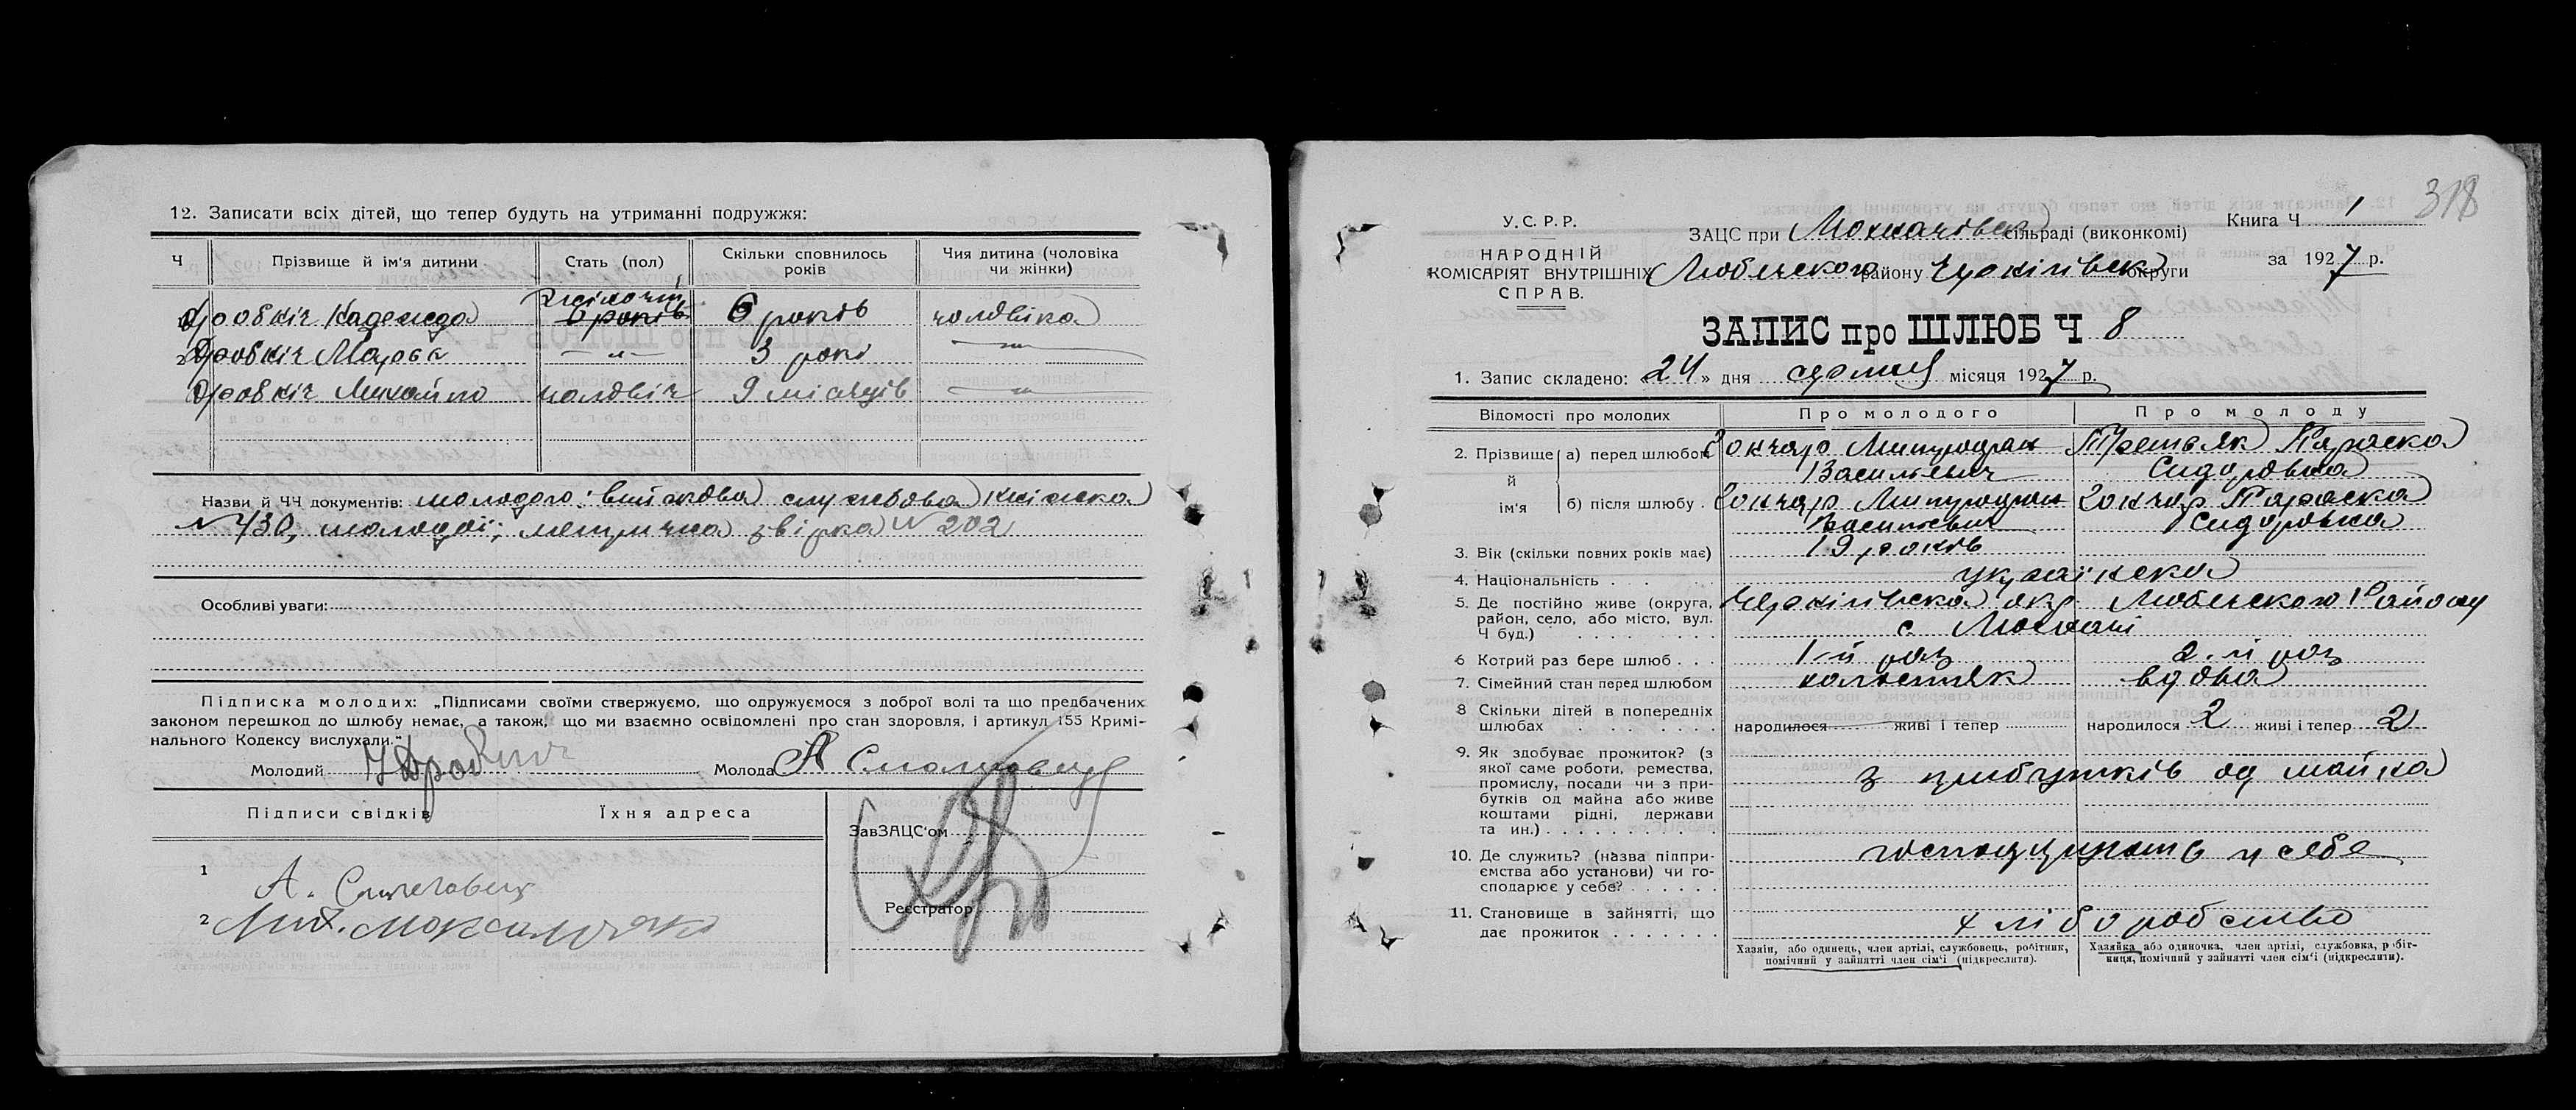 12. Записати всіх дітей, що тепер будуть на утриманні подружжя:
Ч Прізвище й ім'я дитини Стать (пол) Скільки сповнилось років Чия дитина (чоловіка чи жінки)
Дробніч Надежда 6 років 6 років чоловіка
2 Дробніч Марья —„— 3 роки —„—
Дробніч Михайло чоловіч 9 місяців —„—
Назви й ЧЧ документів: молодого: військова службова книжка
№ 430, молодої; метрична звірка № 202
Особливі уваги:
Підписка молодих: „Підписами своїми ствержуємо, що одружуємося з доброї волі та що предбачених
законом перешкод до шлюбу немає, а також, що ми взаємно освідомлені про стан здоровля, і артикул 155 Кримі-
нального Кодексу вислухали.“
Молодий Молода
Підписи свідків Їхня адреса
ЗавЗАЦС'ом
1
А.
Реєстратор
2
318
У.С.Р.Р.
НАРОДНІЙ
КОМІСАРІЯТ ВНУТРІШНІХ
СПРАВ.
ЗАЦС при сільраді (виконкомі) Книга Ч 1
Любецького району Чернігівськ округи за 1927 р.
ЗАПИС про ШЛЮБ Ч 8
1. Запис складено: „24„ дня місяця 1927 р.
Відомості про молодих Про молодого Про молоду
2. Прізвище й ім'я а) перед шлюбом Гончар Митрофан Василевич Третьяк Параска Сидоровна
б) після шлюбу Гончар Митрофан Василевич Гончар Параска Сидоровна
3. Вік (скільки повних років має) 19 років
4. Національність українска
5. Де постійно живе (округа, район, село, або місто, вул. Ч буд.) Чернігівска окр Любецького Району
с.
6 Котрий раз бере шлюб 1-й раз 2-й раз
7. Сімейний стан перед шлюбом холостяк вдова
8 Скільки дітей в попередніх шлюбах народилося живі і тепер народилося 2 живі і тепер 2
9. Як здобуває прожиток? (з якої саме роботи, ремества, промислу, посади чи з прибутків од майна або живе коштами рідні, держави та ин.) з прибутків од майна
10. Де служить? (назва підприємства або установи) чи господарює у себе? у себе
11. Становище в зайнятті, що дає прожиток хліборобство
Хазяїн, або одинець, член артілі, службовець, робітник, помічний у зайнятті член сім'ї (підкреслити).
Хазяйка або одиночка, член артілі, службовка, робітниця, помічний у зайнятті член сім'ї (підкреслити).